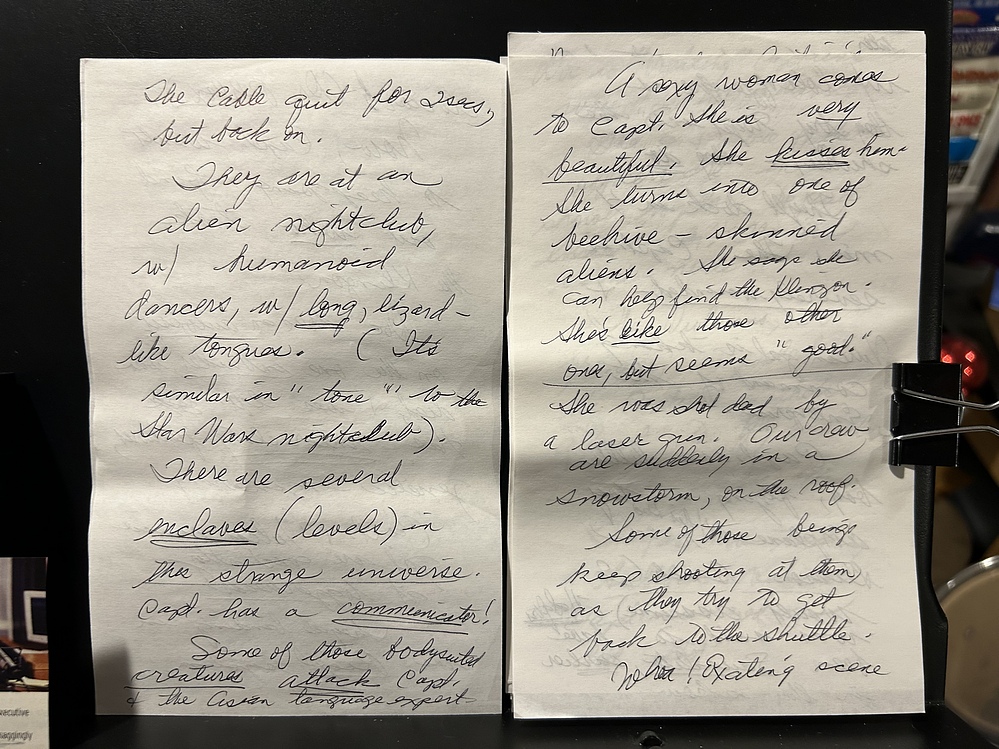 The Cable quit for 2secs,
but back on.
They are at an
alien nightclub,
w/ humanoid
dancers, w/ long, lizard-
like tongues. (Its
similar in "tone" to the
Star Wars nightclub).
There are several
enclaves (levels) in
this strange universe.
Capt. has a communicator!
Some of those bodysuited
creatures attack Capt.
& the Asian language expert-
A sexy woman comes
to Capt. She is very
beautiful. She kisses him-
She turns into one of
beehive-skinned
aliens. She says she
can help find the Klingon.
She's like those other
ones, but seems "good."
She was shot dead by
a laser gun. Our crew
are suddenly in a
snowstorm, on the roof.
Some of those beings
keep shooting at them,
as they try to get
back to the shuttle.
Whoa! Exating scene
xecutive
naggingly